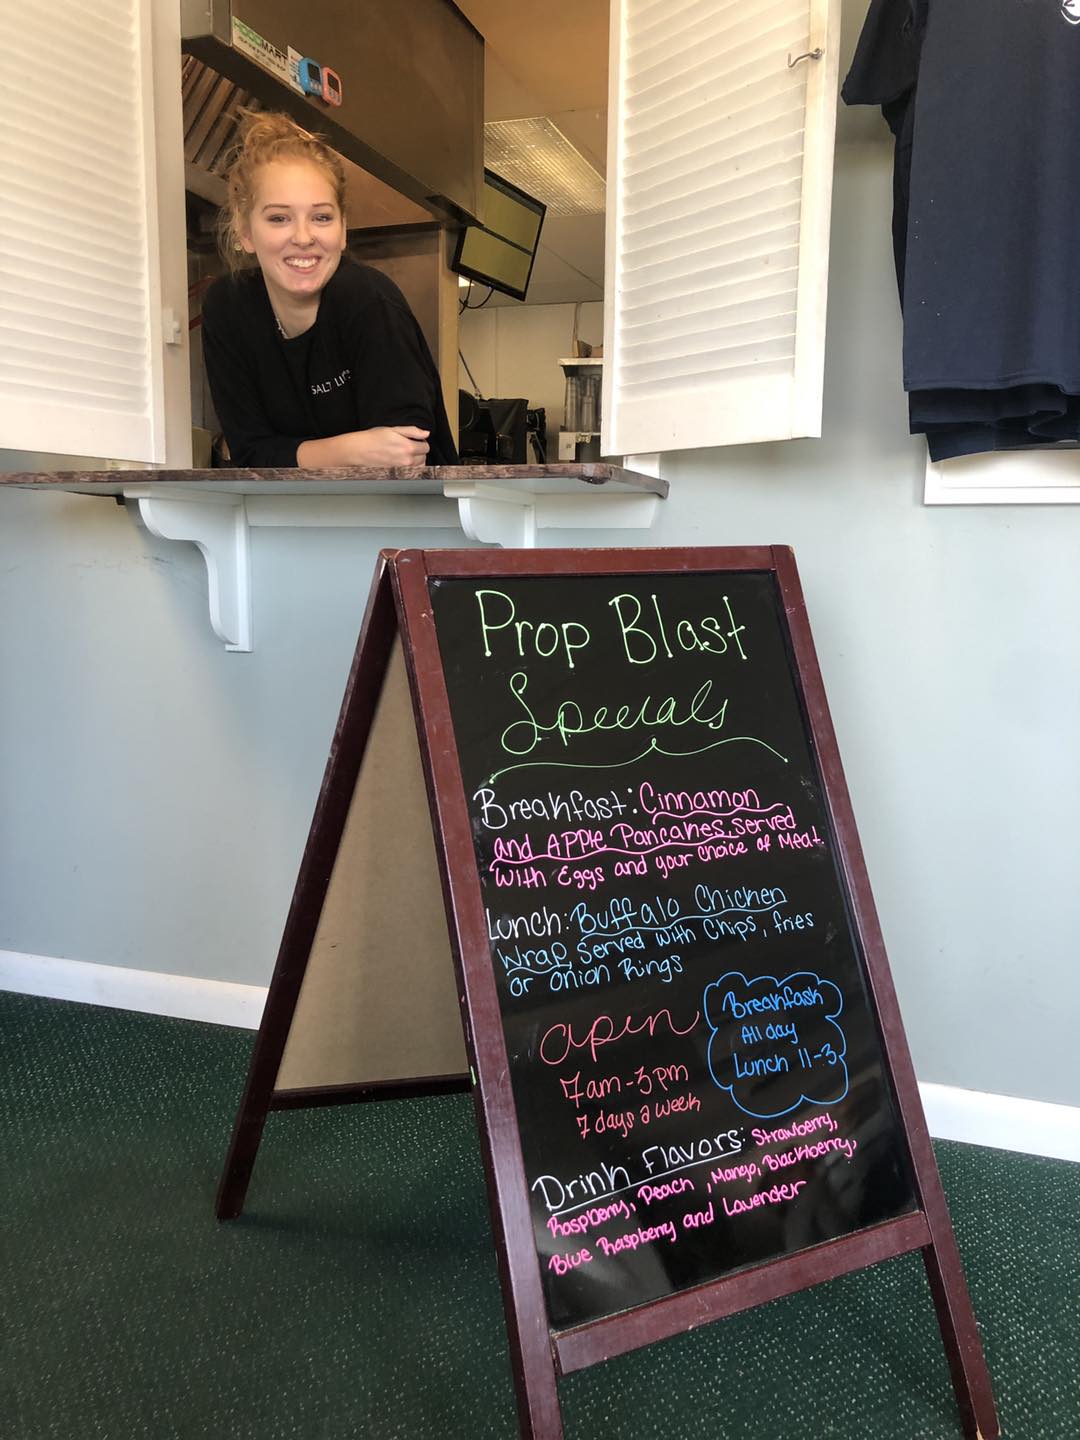 FOODMART
SALT LIFE
Prop Blast
Specials
Breakfast: Cinnamon
and APPle Pancakes, served
with Eggs and your choice of Meat.
Lunch: Buffalo Chicken
Wrap, served with Chips, fries
or Onion Rings
open
7am-3pm
7 days a week
Breakfast
All day
Lunch 11-3
Drink Flavors: Strawberry,
Raspberry, Peach, Mango, Blackberry,
Blue Raspberry and Lavender